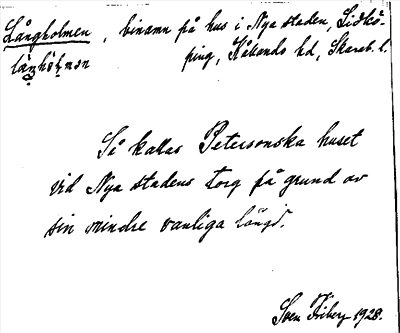 Långholmen, binamn på hus i Nya staden, Lidkö-
ping, Kållands hd, Skarab. l.
Så kallas Petersonska huset
vid Nya stadens torg på grund av
sin mindre vanliga längd.
Sven Friberg 1928.